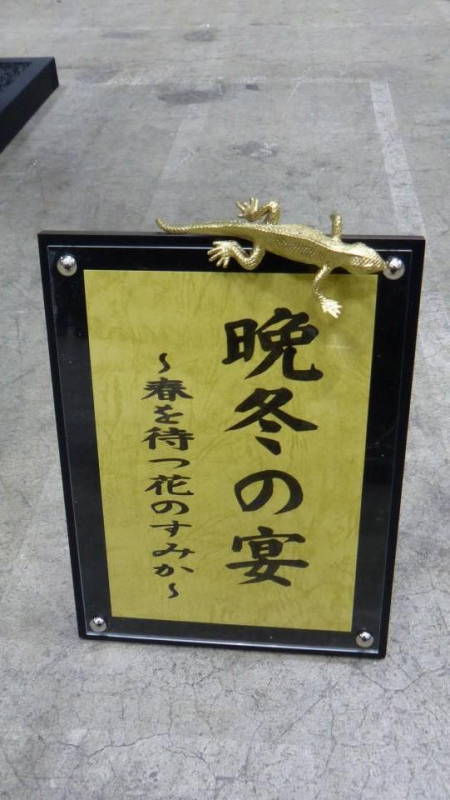 晩冬の宴
～春を待つ花のすみか～